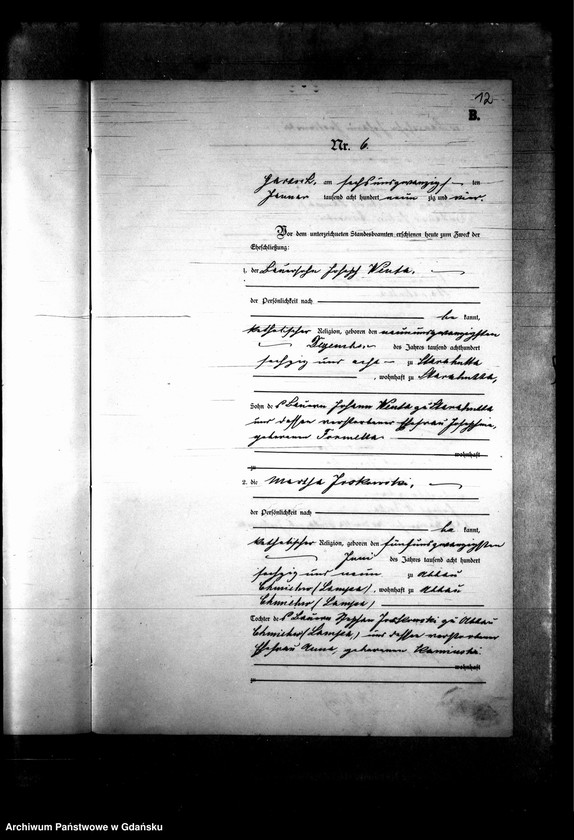 12
B.
Nr. 6.
am sechsundzwanzigsten ten
Januar tausend acht hundert neun zig und vier.
Vor dem unterzeichneten Standesbeamten erschienen heute zum Zweck der
Eheschließung:
1. der Bauersohn Joseph Wenta,
der Persönlichkeit nach
be kannt,
katholischer Religion, geboren den neunundzwanzigsten
Dezember des Jahres tausend achthundert
sechzig und acht zu Starahutta
, wohnhaft zu Starahutta,
Sohn des Bauern Johann Wenta zu Starahutta
und dessen verstorbener Ehefrau Josephine,
geborenen Formella
wohnhaft
zu
2. die Martha Joskowski,
der Persönlichkeit nach
be kannt,
katholischer Religion, geboren den fünfundzwanzigsten
Juni des Jahres tausend acht hundert
sechzig und neun zu Abbau
, wohnhaft zu Abbau
Tochter des Bauern Stephan zu Abbau
und dessen verstorbener
Ehefrau Anna, geborenen Kaminski
wohnhaft
zu
Archiwum Państwowe w Gdańsku